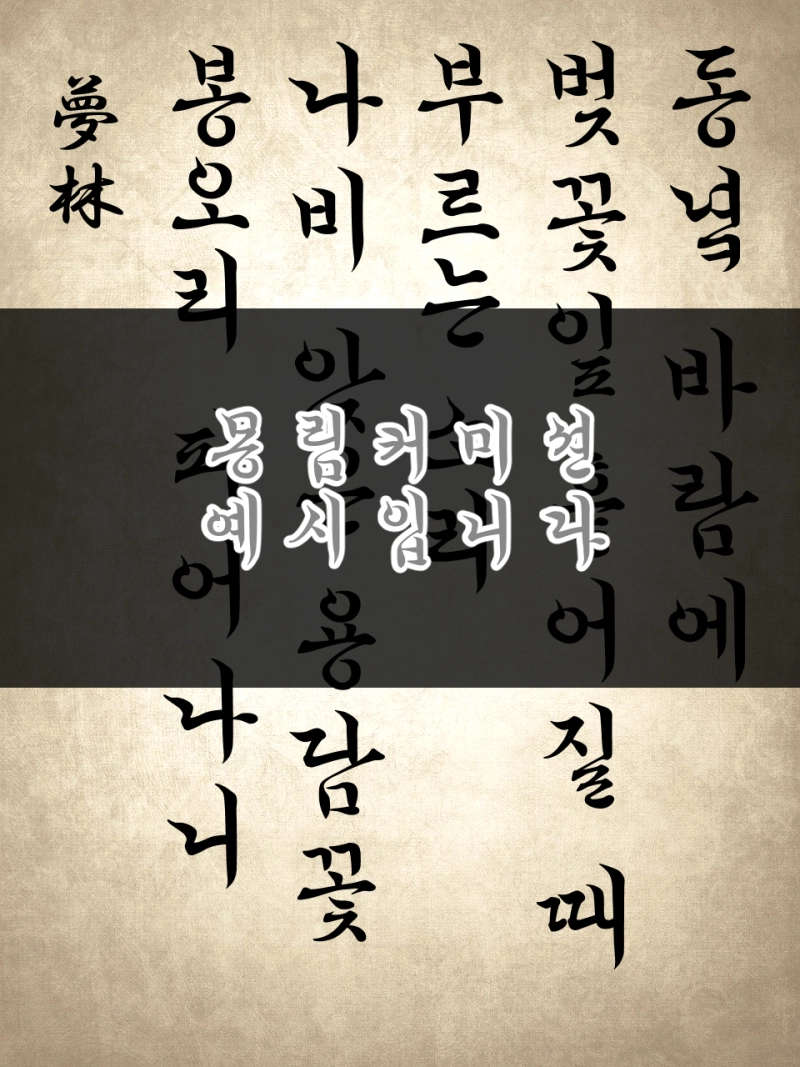 동녘 바람에
벚꽃잎 흩어질 때
부르는 소리
나비 앉은 용담꽃
봉오리 피어나니
夢林
몽림커미션
예시입니다